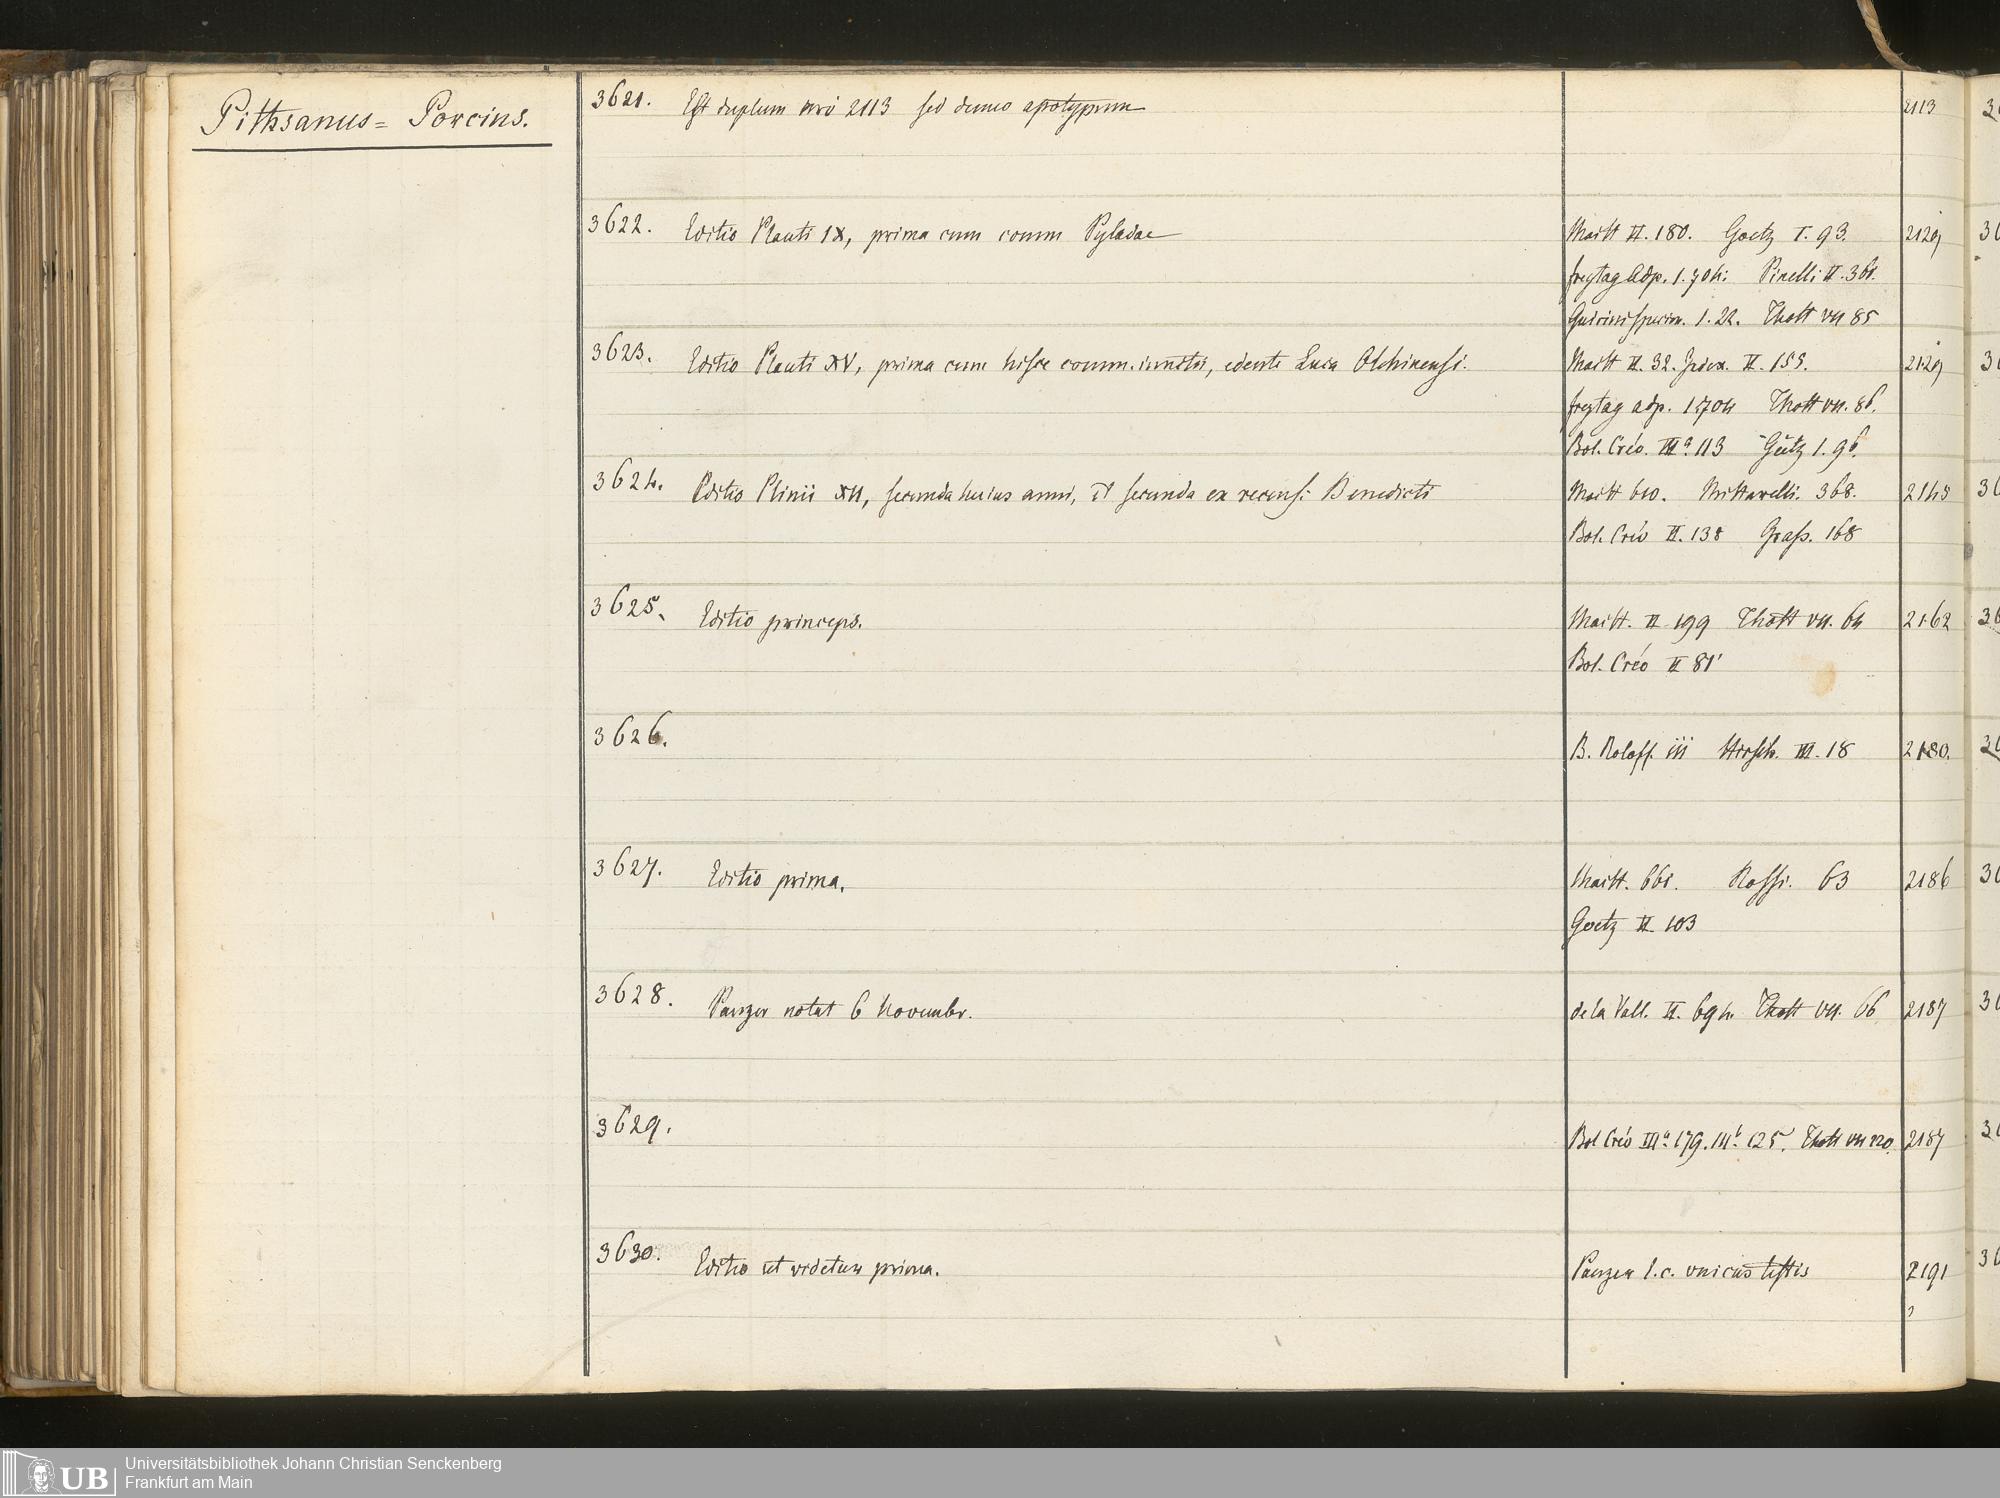 Pithsanus = Porcius.
3621. Est duplum nro 2113 sed denuo apotypum 2113
3622. Editio Plauti IX, prima cum comm Pyladae
Maitt II. 180. Goetz I. 93. 2129
freytag Adp. 1. 704. Pinelli II. 361.
Quirini specim. 1. 22. Thott VII 85
3623. Editio Plauti XV, prima cum hisce comm. edente Luca Olchinensi.
Maitt II. 32. Index. II. 155. 2129
freytag adp. 1.704 Thott VII. 86.
Bol. Créo. III a 113 Götz 1. 96.
3624. Editio Plinii XII, secunda huius anni, et secunda ex recens: Benedicti
Maitt 610. Mittarelli. 368. 2145
Bol. Créo II. 138 Grass. 168
3625. Editio princeps.
Maitt. II 199 Thott VII. 64 2162
Bol. Créo II 81
3626. B. Roloff. iii Hirsch. III. 18 2180.
3627. Editio prima.
Maitt. 661. Rossi. 63 2186
Goetz II 103
3628. Panzer notat 6 Novembr.
de la Vall. II. 694. Thott VII. 66 2187
3629. Bol Créo III a. 179. III b. 125. Thott VII 120. 2187
3630. Editio ut videtur prima.
Panzer l.c. unicus testis 2191
UB
Universitätsbibliothek Johann Christian Senckenberg
Frankfurt am Main